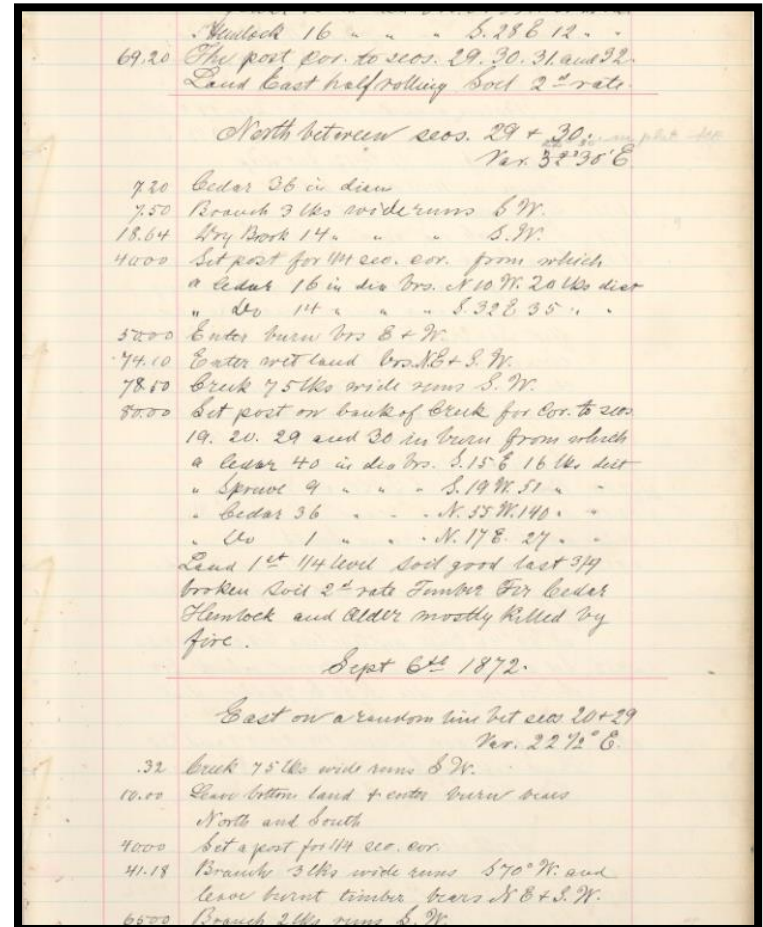 " Hemlock 16 " " " S. 28 E 12 " "
69.20 The post cor. to secs. 29. 30. 31. and 32.
Land East half rolling Soil 2nd rate.
North between secs. 29 + 30. in plat
22° 30'
Var. 32° 30' E
7.20 Cedar 36 in diam
7.50 Branch 3 lks wide runs S W.
18.64 Dry Brook 14 " " " S. W.
40.00 Set post for 1/4 sec. cor. from which
a Cedar 16 in dia brs. N 10 W. 20 lks dist
" Do 14 " " " S. 32 E 35 " "
50.00 Enter burn brs E + W.
74.10 Enter wet land brs. N.E + S. W.
78.50 Creek 75 lks wide runs S. W.
80.00 Set post on bank of Creek for Cor. to secs
19. 20. 29 and 30 in burn from which
a Cedar 40 in dia brs. S. 15 E 16 lks dist
" Spruce 9 " " " S. 19 W. 51 " "
" Cedar 36 " " " N. 55 W. 140 " "
" Do 1 " " " N. 17 E. 27 " "
Land 1st 1/4 level soil good last 3/4
broken Soil 2d rate Timber Fir Cedar
Hemlock and Alder mostly killed by
fire.
Sept 6th 1872.
East on a random line bet secs 20 + 29
Var. 22 1/2° E.
.32 Creek 75 lks wide runs S W.
10.00 Leave bottom land + enter burn bears
North and South
40.00 Set a post for 1/4 sec. cor.
41.18 Branch 3 lks wide runs S 70° W. and
leave burnt timber bears N E + S. W.
65.00 Branch 2 lks runs S. W.